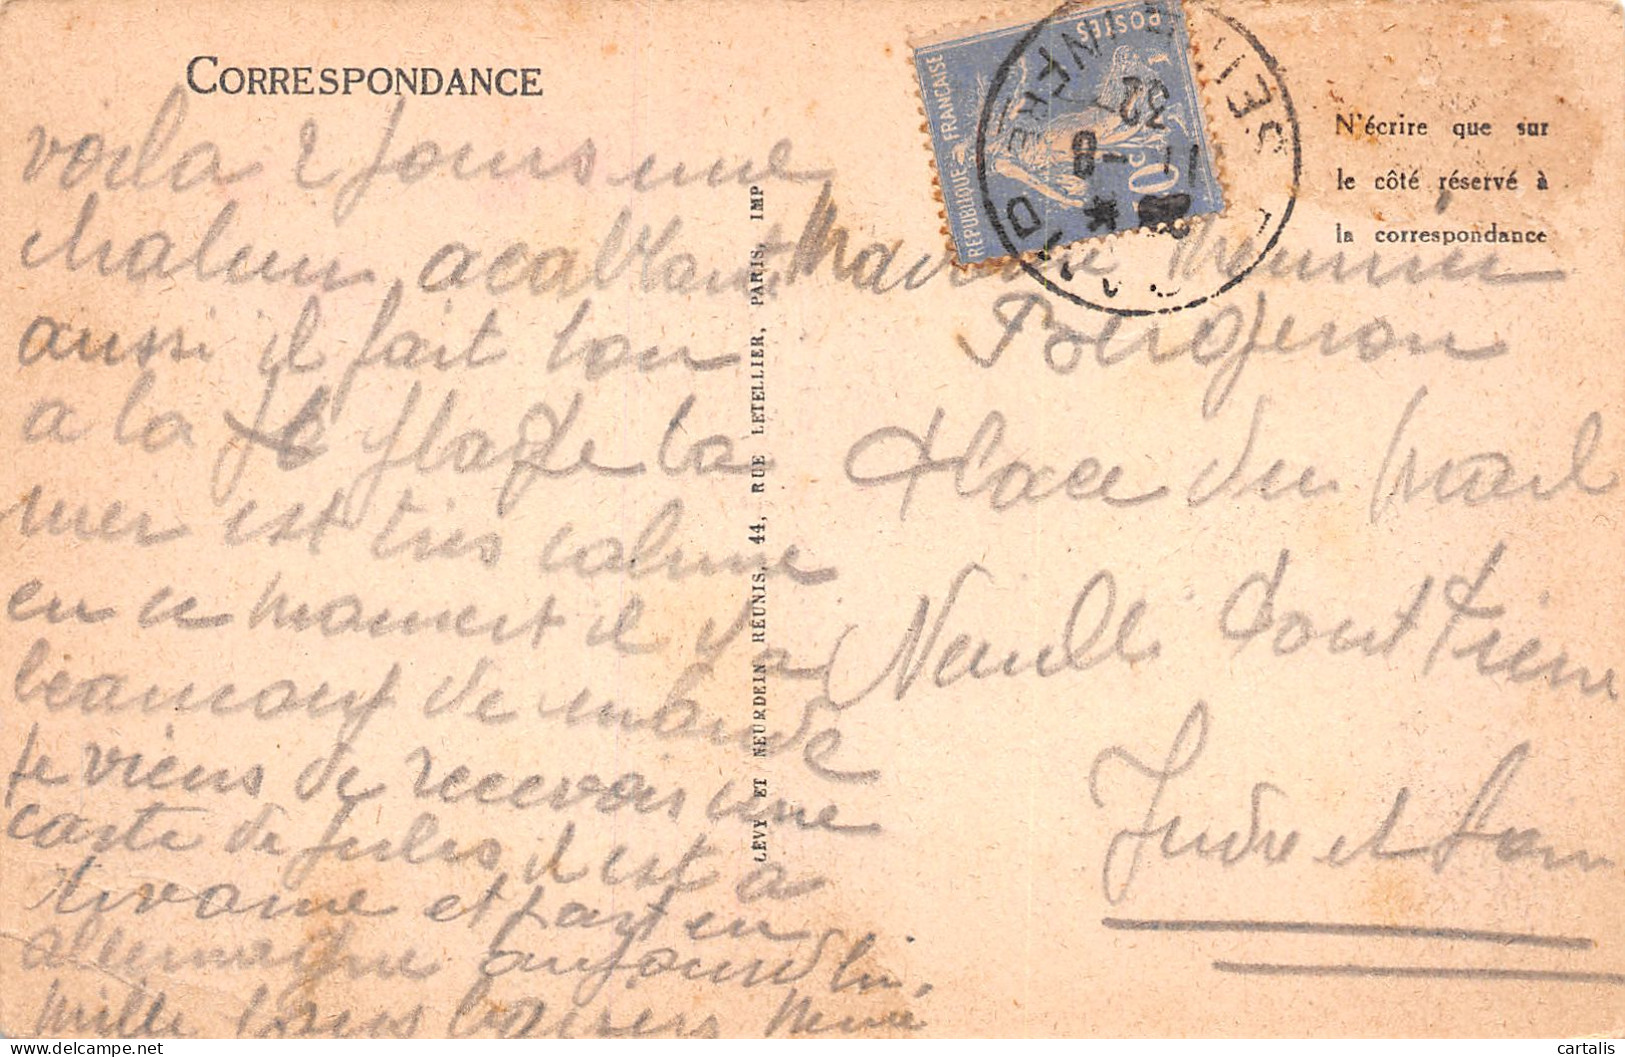 CORRESPONDANCE
voila 2 jours une
chaleur acablante
aussi il fait bon
a la plage la
mer est tres calme
en ce moment il y a
beaucoup de monde
je viens de recevoir une
carte de Jules il est a
et part en
allemagne aujourd'hui.
Mille bons baisers
LEVY ET NEURDEIN RÉUNIS, 44, RUE LETELLIER, PARIS, IMP
REPUBLIQUE FRANÇAISE
POSTES
SEINE INFRE
11 -8
32
N'écrire que sur
le côté réservé à
la correspondance
Madame Meunier
Bergeron
Place du Mail
Neuillé Pont Pierre
Indre et Loire
cartalis
delcampe.net